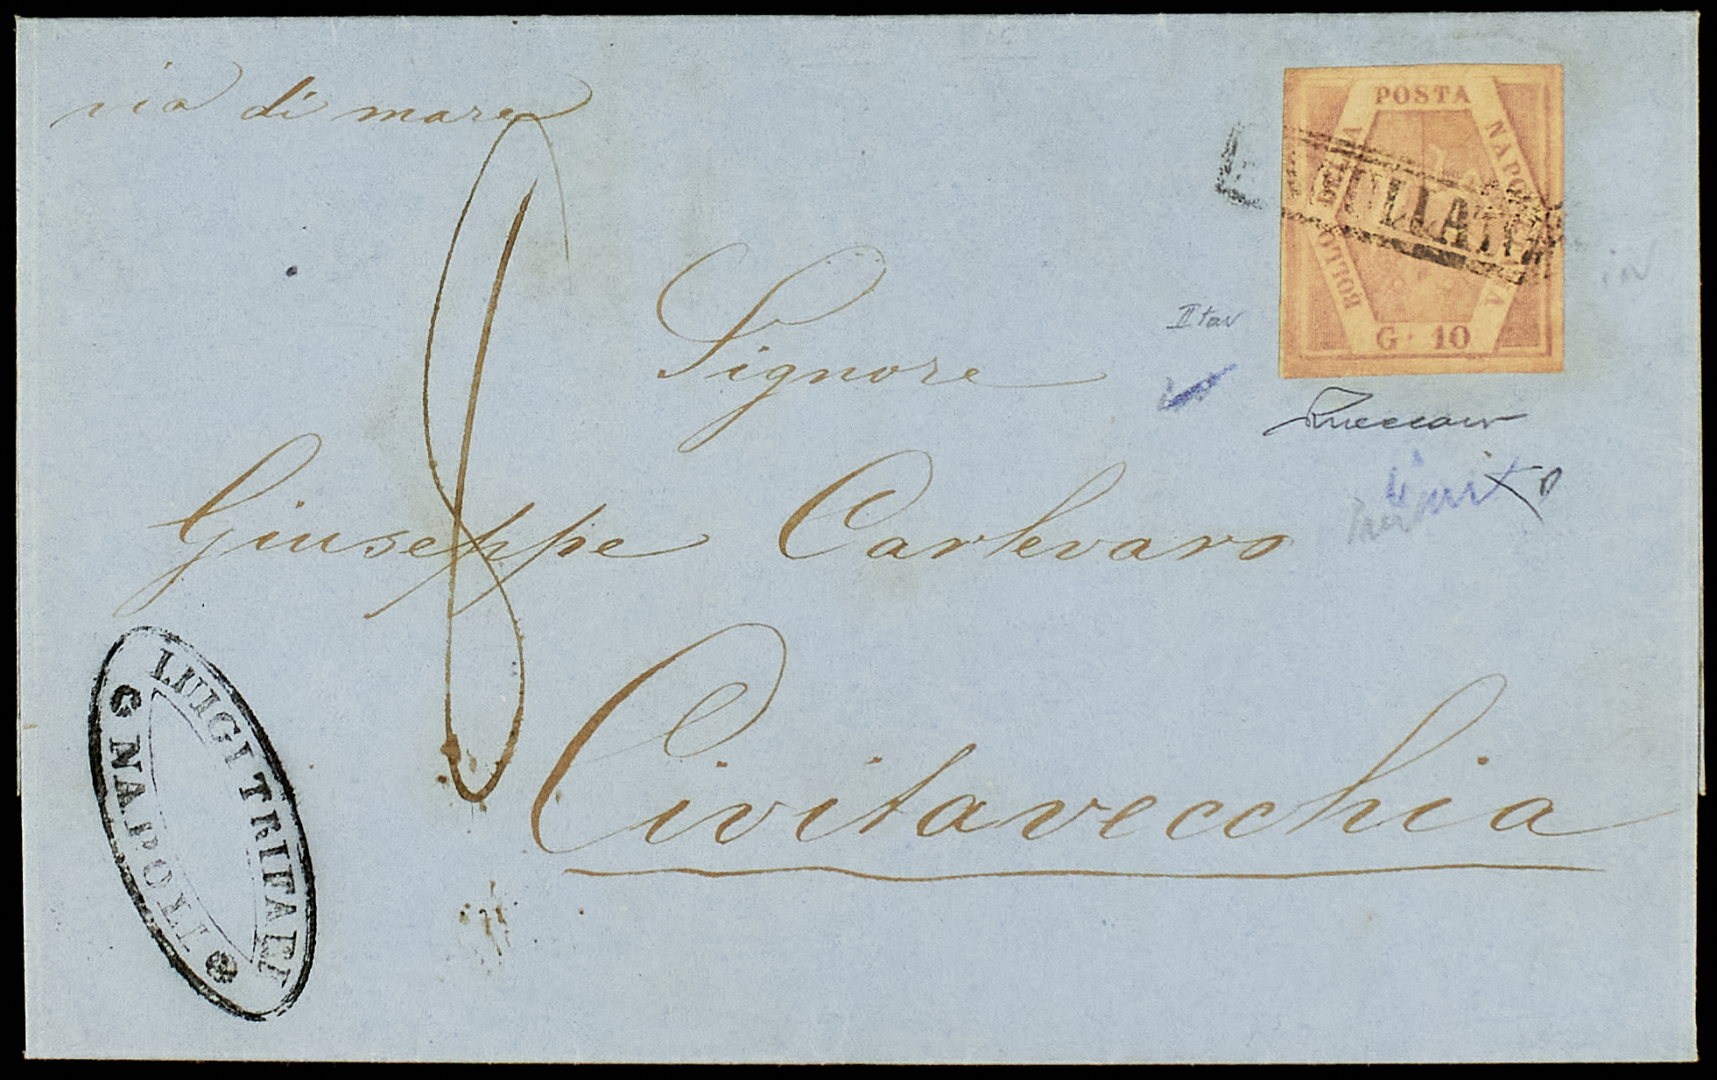 via di mare
POSTA
NAPO
BOLLO DELLA
G. 10
ULLATO
II tav
8
Signore
Giuseppe Carlevaro
Civitavecchia
LUIGI TRIFARI
NAPOLI